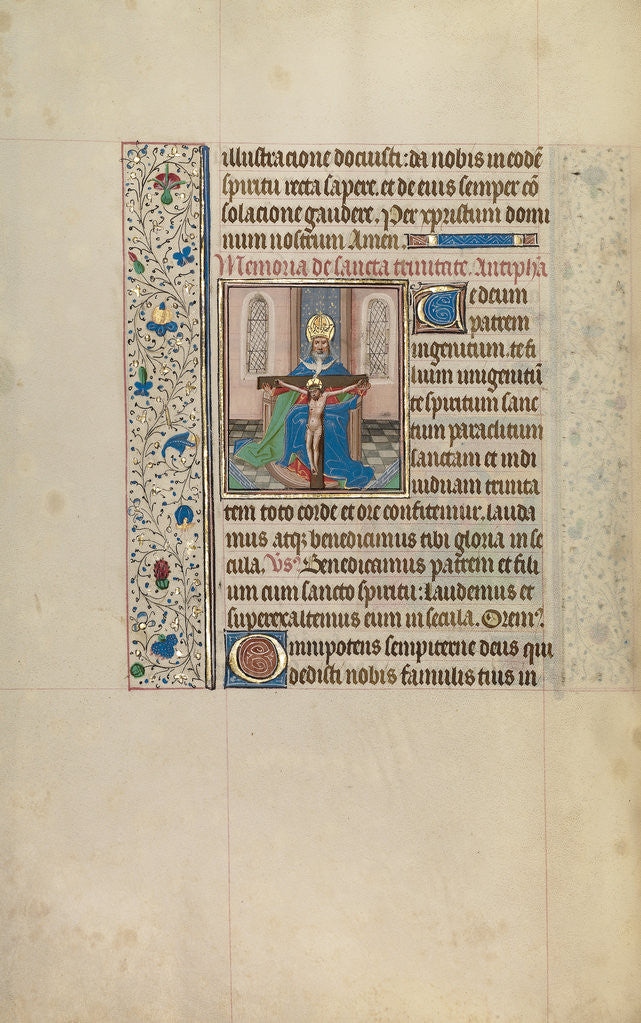 illustracione docuisti: da nobis in eodē
spiritu recta sapere. et de eius semper cō
solacione gaudere. Per xpristum domi
num nostrum Amen.
Memoria de sancta trinitate. Antiph̄a
Te deum
patrem
ingenitum. te fi
lium unigenitū
te spiritum sanc
tum paraclitum
sanctam et indi
uiduam trinita
tem toto corde et ore confitemur. lauda
mus atqꝫ benedicimus tibi gloria in se
cula. Vs̄ Benedicamus patrem et fili
um cum sancto spiritu: Laudemus et
superexaltemus eum in secula. Oremꝰ.
Omnipotens sempiterne deus qui
dedisti nobis famulis tuis in